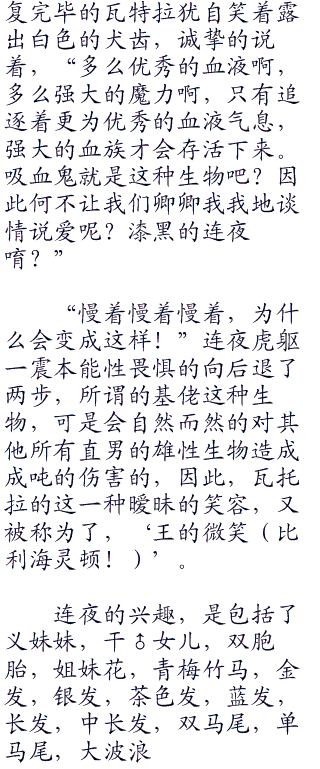 复完毕的瓦特拉犹自笑着露
出白色的犬齿，诚挚的说
着，“多么优秀的血液啊，
多么强大的魔力啊，只有追
逐着更为优秀的血液气息，
强大的血族才会存活下来。
吸血鬼就是这种生物吧？因
此何不让我们卿卿我我地谈
情说爱呢？漆黑的连夜
唷？”
“慢着慢着慢着，为什
么会变成这样！”连夜虎躯
一震本能性畏惧的向后退了
两步，所谓的基佬这种生
物，可是会自然而然的对其
他所有直男的雄性生物造成
成吨的伤害的，因此，瓦托
拉的这一种暧昧的笑容，又
被称为了，‘王的微笑（比
利海灵顿！）’。
连夜的兴趣，是包括了
义妹妹，干♂女儿，双胞
胎，姐妹花，青梅竹马，金
发，银发，茶色发，蓝发，
长发，中长发，双马尾，单
马尾，大波浪